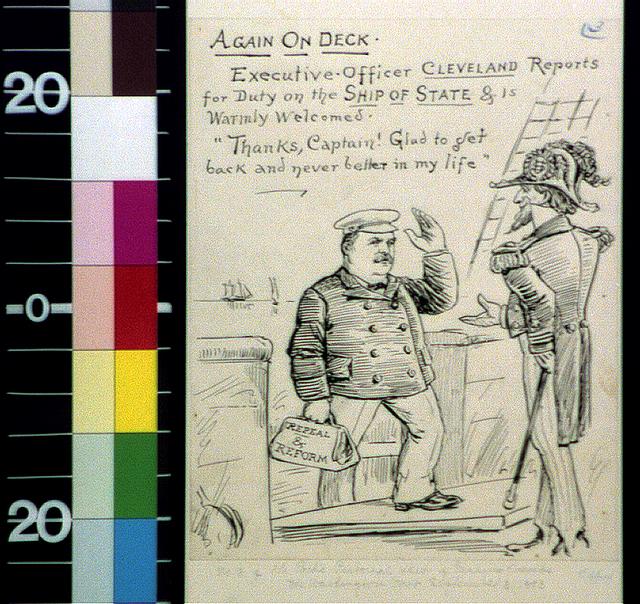 20
0
20
AGAIN ON DECK.
Executive-Officer CLEVELAND Reports
for Duty on the SHIP OF STATE & is
Warmly Welcomed.
"Thanks, Captain! Glad to get
back and never better in my life"
REPEAL
&
REFORM